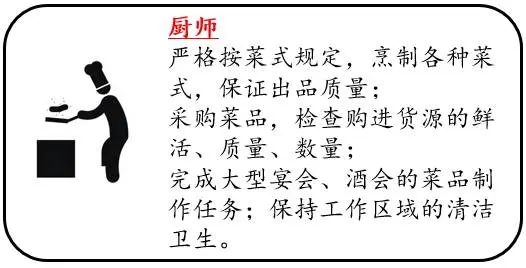 厨师
严格按菜式规定，烹制各种菜
式，保证出品质量；
采购菜品，检查购进货源的鲜
活、质量、数量；
完成大型宴会、酒会的菜品制
作任务；保持工作区域的清洁
卫生。